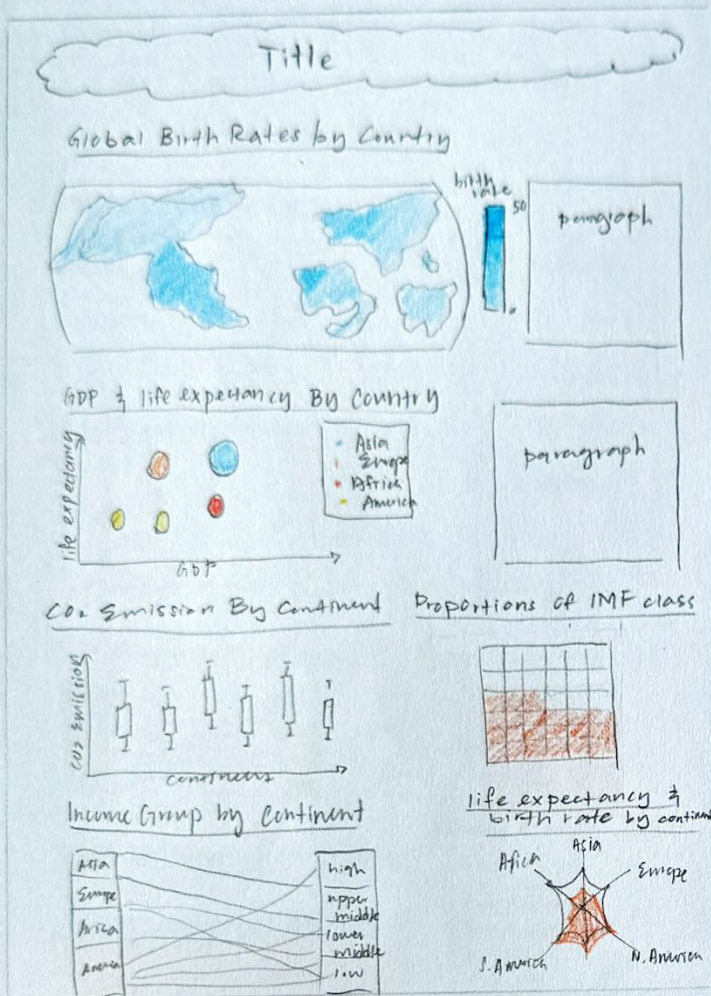 Title
Global Birth Rates by Country
birth
rate
50
0
paragraph
GDP & life expectancy By Country
life expectancy
GDP
Asia
Europe
Africa
America
paragraph
CO2 Emission By Continent
CO2 Emission
Continent
Proportions of IMF class
Income Group by Continent
Asia
Europe
Africa
America
high
upper
middle
lower
middle
low
life expectancy &
birth rate by continent
Asia
Africa
Europe
S. America
N. America